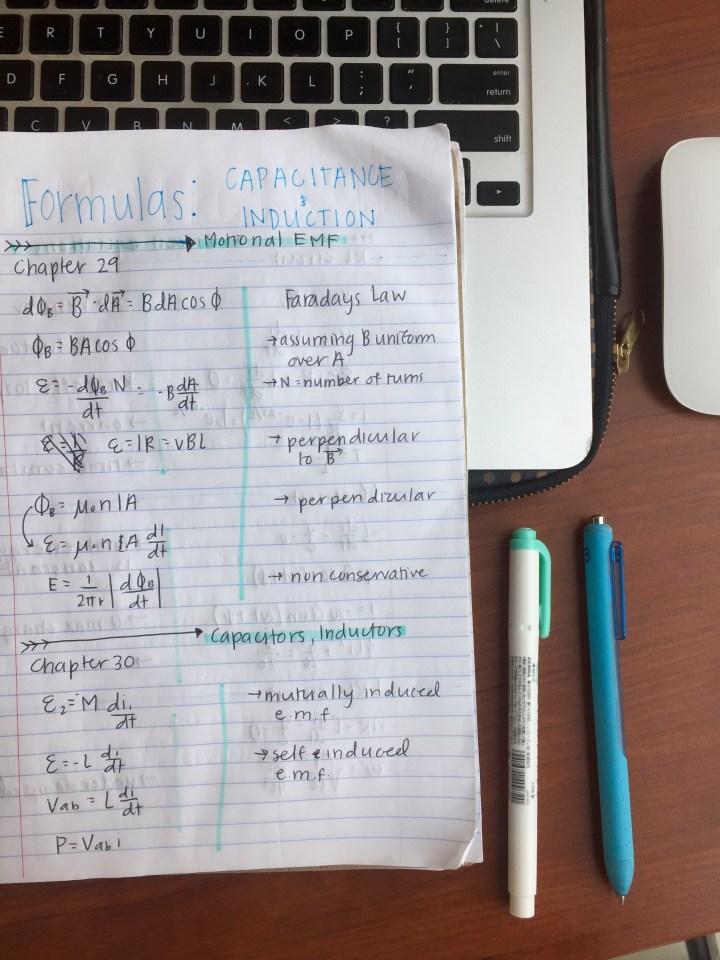 E R T Y U I O P { [ } ] | \
D F G H J K L : ; " ' enter return
C V B N M < , > . ? / shift
Formulas: CAPACITANCE
& INDUCTION
Motional EMF
Chapter 29
dΦ_B = B⃗ · dA⃗ = B dA cos ϕ Faradays Law
Φ_B = BA cos ϕ → assuming B uniform
over A
ℰ = -dΦ_B/dt N = -B dA/dt → N = number of turns
ℰ = IR = vBL → perpendicular
to B⃗
Φ_B = μ₀nIA → perpendicular
ℰ = μ₀nA di/dt
E = 1/2πr |dΦ_B/dt| → non conservative
Capacitors, Inductors
Chapter 30
ℰ₂ = -M di₁/dt → mutually induced
e.m.f.
ℰ = -L di/dt → self induced
e.m.f.
V_ab = L di/dt
P = V_ab i